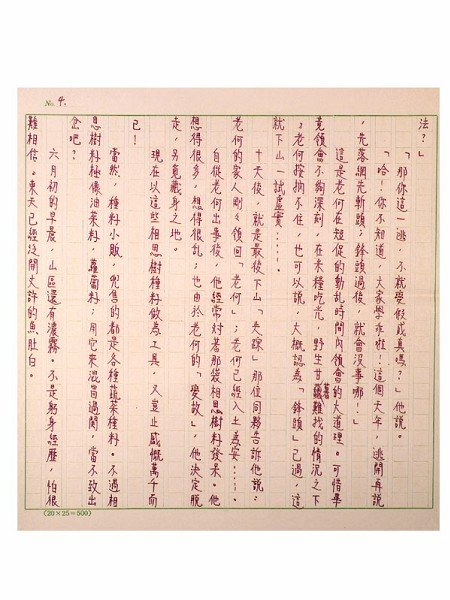 No. 4.
法？」
「那你這一逃，不就變假成真嗎？」他說。
「哈！你不知道，大家學乖啦！這個大年，逃開再說
，先落網先斬頭；鋒頭過後，就會沒事哪！」
這是老何在短促的動亂時間內領會的大道理。可惜畢
竟領會不夠深刻，在米糧吃光，野生甘薯難找的情況之下
，老何按捺不住，也可以說，大概認為「鋒頭」已過，這
就下山一試虛實……。
十天後，就是最後下山「失踪」那位同夥告訴他說：
老何的家人剛去領回「老何」；老何已經入土為安……。
自從老何出事後，他經常對著那袋相思樹種料發呆。他
想得很多，想得很亂；也由於老何的「變故」，他決定脫
走，另覓藏身之地。
現在以這些相思樹種料做為工具，又豈止感慨萬千而
已！
當然，種料小販，兜售的都是各種蔬菜種料。不過相
思樹料極像油菜料，蘿蔔料；用它來混冒過關，當不致出
岔吧？
六月初的早晨，山區還有濃霧。不是躬身經歷，怕很
難相信。東天已經泛開丈許的魚肚白。
(20×25=500)